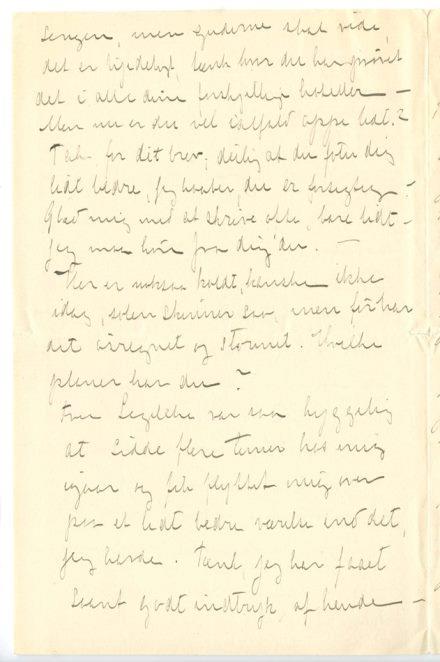 sengen, men guderne skal vide,
det er kjedeligt, tænk hvor du har prøvet
det i alle dine forskjellige hoteller –
Men nu er du vel ialfald oppe lidt.?
Tak for dit brev, deilig at du føler dig
lidt bedre, jeg haaber, du er forsigtig –
Glæd mig med at skrive ofte, bare lidt –
jeg maa høre fra dig du. –
Her er koldt, kanske ikke
idag, solen skinner saa, men før har
det øsregnet og stormet. Hvilke
planer har du?
Fru var saa hyggelig
at sidde flere timer hos mig
igaar og fik flyttet mig over
paa et lidt bedre værelse end det,
jeg havde. Tænk, jeg har faaet
saant godt indtryk af hende –